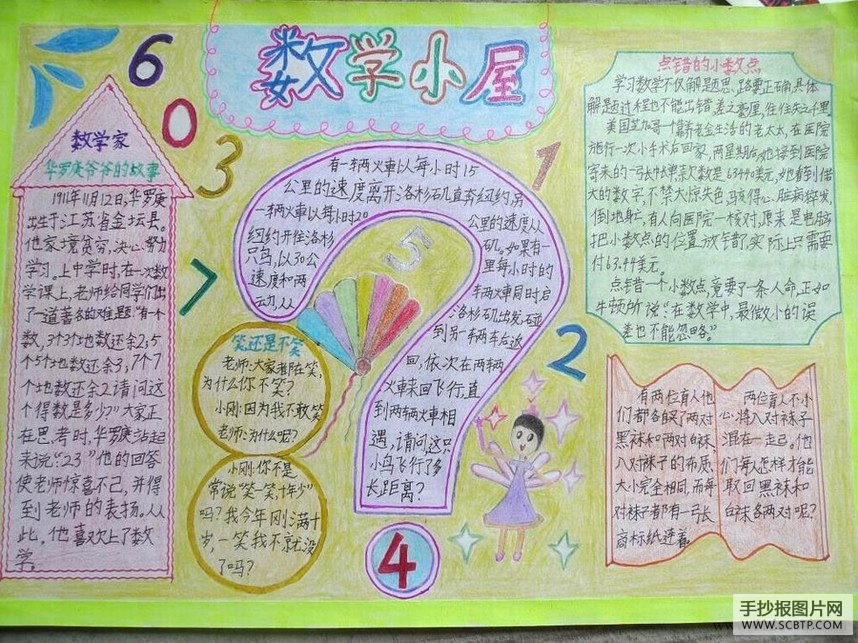 数学小屋
6
0
3
7
1
5
2
4
数学家
华罗庚爷爷的故事
1911年11月12日,华罗庚
出生于江苏省金坛县。
他家境贫穷,决心努力
学习。上中学时,在一次数
学课上,老师给同学们出
了一道著名的难题:“有一个
数,3个3个地数还余2,5个
5个地数还余3,7个7
个地数还余2,请问这
个得数是多少?”大家正
在思考时,华罗庚站起
来说:“23”他的回答
使老师惊喜不已,并得
到老师的表扬。从
此,他喜欢上了数
学。
有一辆火車以每小时15
公里的速度离开洛杉矶直奔纽约,另
一辆火車以每小时20
公里的速度从
纽约开往洛杉
矶。如果有一
只鸟,以30公
里每小时的
速度和两
辆火車同时启
动,从
洛杉矶出发,碰
到另一辆车后返
回,依次在两辆
火車来回飞行,直
到两辆火車相
遇,请问,这只
小鸟飞行了多
长距离?
笑还是不笑
老师:大家都在笑,
为什么你不笑?
小刚:因为我不敢笑
老师:为什么呢?
小刚:你不是
常说“笑一笑,十年少”
吗?我今年刚满十
岁,一笑我不就没
了吗?
点错的小数点
学习数学不仅解题思路要正确,具体
解题过程也不能出错,差之毫厘,往往失之千里。
美国芝加哥一个靠养老金生活的老太太,在医院
施行一次小手术后回家,两星期后,她接到医院
寄来的一张帐单,款数是63440美元,她看到偌
大的数字,不禁大惊失色,骇得心脏病猝发,
倒地身亡,有人向医院一核对,原来是电脑
把小数点的位置放错了,实际上只需要
付63.44美元。
点错一个小数点,竟要了一条人命,正如
牛顿所说:“在数学中,最微小的误
差也不能忽略。”
有两位盲人,他
们都各自买了两对
黑袜和两对白袜,
八对袜子的布质、
大小完全相同,而每
对袜子都有一张
商标纸连着。
两位盲人不小
心将八对袜子
混在一起。他
们每人怎样才能
取回黑袜和
白袜各两对呢?
手抄报图片网
WWW.SCBTP.COM